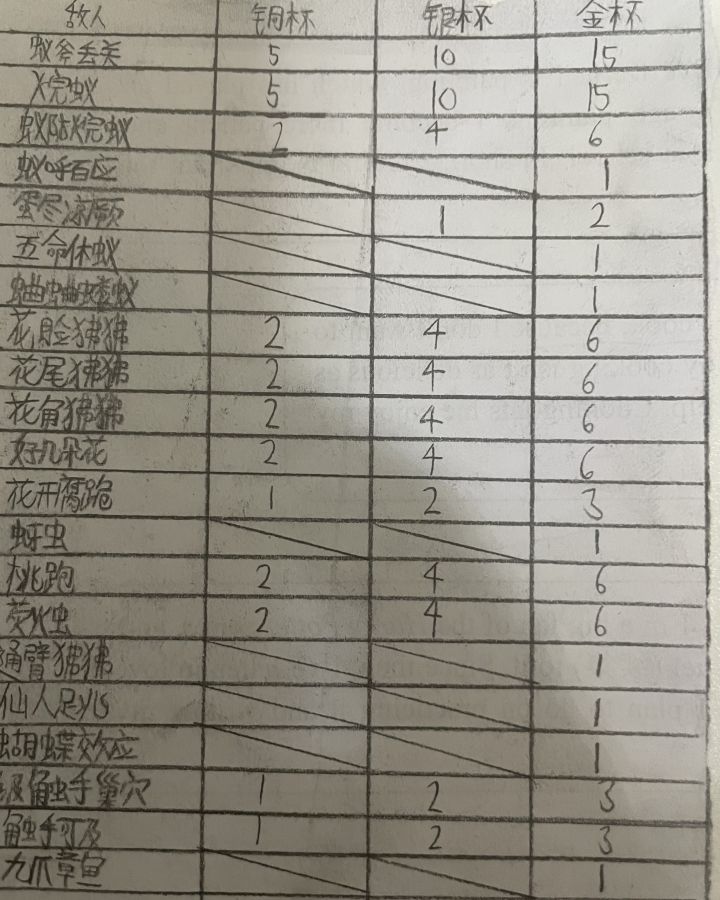 敌人 铜杯 银杯 金杯
蚁斧丢关 5 10 15
火完蚁 5 10 15
蚁阽火完蚁 2 4 6
蚁呼百应 1
蛋尽凉颐 1 2
五命休蚁 1
蛐蛐蝼蚁 1
花脸狒狒 2 4 6
花尾狒狒 2 4 6
花角狒狒 2 4 6
好几朵花 2 4 6
花开腐跪 1 2 3
蚜虫 1
桃跑 2 4 6
荧火虫 2 4 6
通臂狒狒 1
仙人足兆 1
蝴蝶效应 1
级触手巢穴 1 2 3
触手可及 1 2 3
九爪章鱼 1